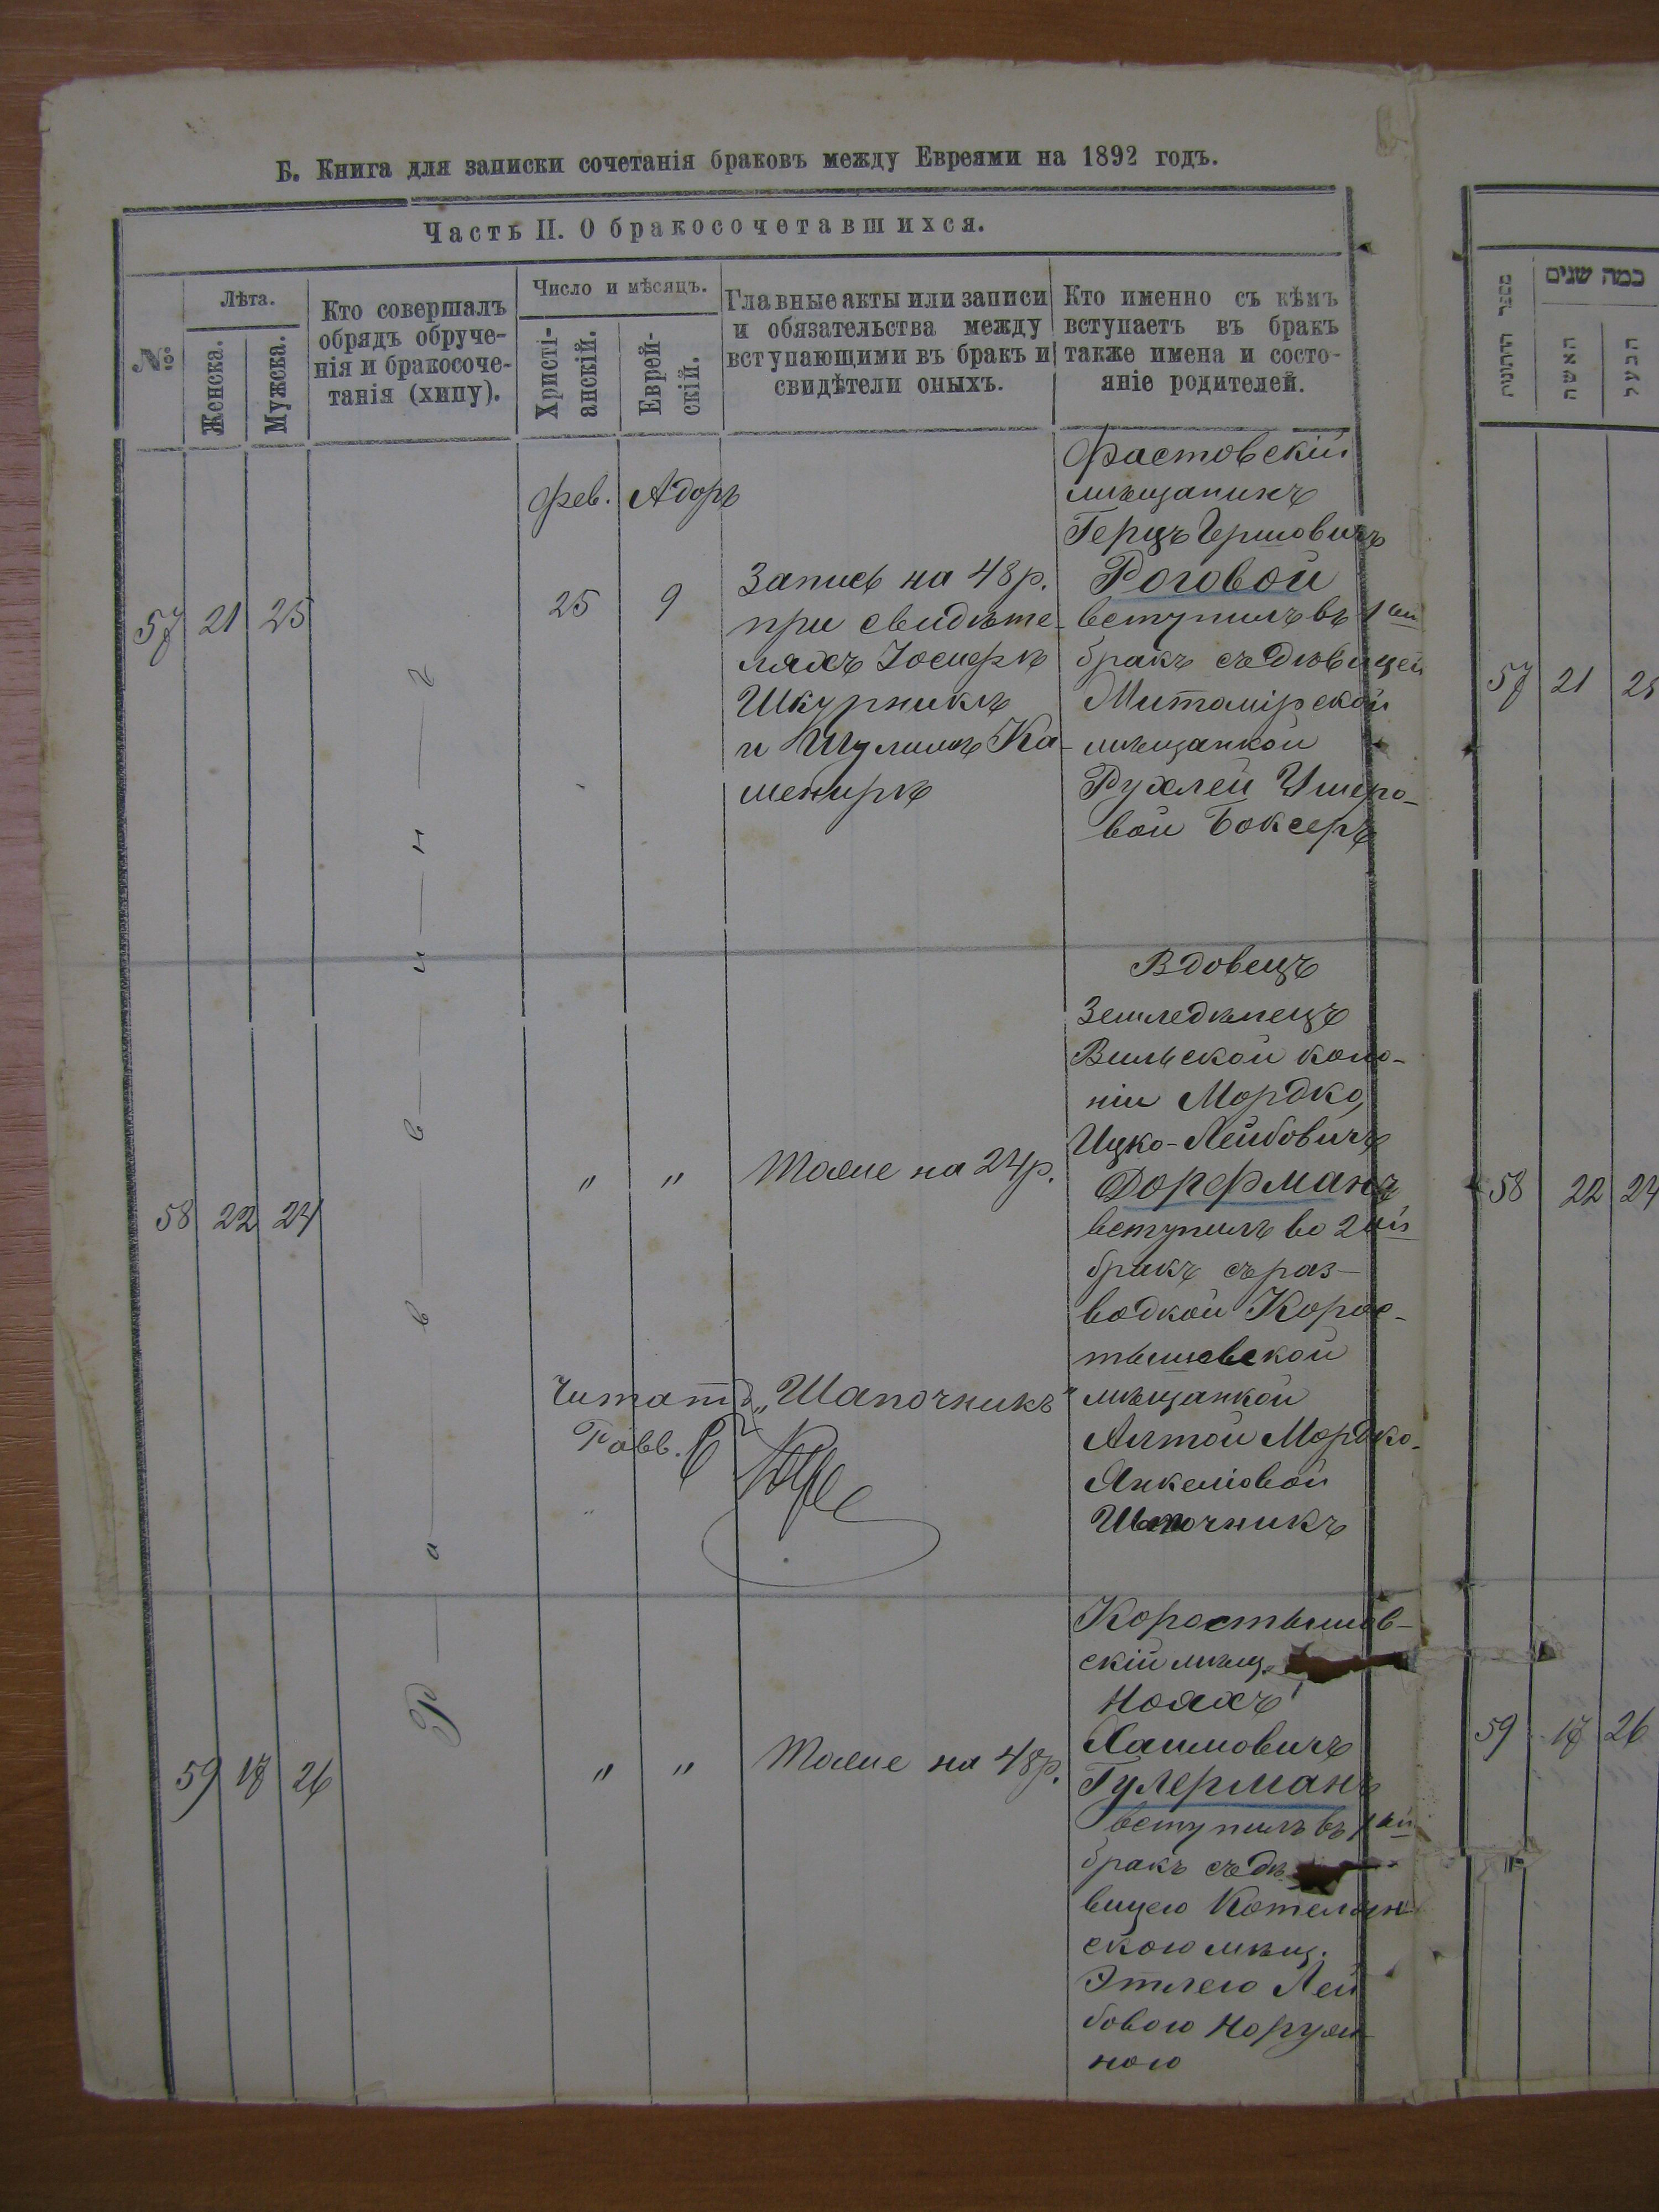 Б. Книга для записки сочетанія браковъ между Евреями на 1892 годъ.
Часть II. О бракосочетавшихся.
№
Лѣта.
Женска.
Мужска.
Кто совершалъ
обрядъ обруче-
нія и бракосоче-
танія (хипу).
Число и мѣсяцъ.
Христі-
анскій.
Еврей-
скій.
Главные акты или записи
и обязательства между
вступающими въ бракъ и
свидѣтели оныхъ.
Кто именно съ кѣмъ
вступаетъ въ бракъ
также имена и состо-
яніе родителей.
Р а в в и н ъ
57 21 25
Фев. Адоръ
25 9
Запись на 48 р.
при свидѣте-
ляхъ Іосифѣ
Шкурникѣ
и Шулимѣ Ка-
менирѣ
Фастовскій
мѣщанинъ
Герцъ Гершовичъ
Роговой
вступилъ въ 1ый
бракъ съ дѣвицей
Житомірской
мѣщанкой
Рухлей
вой Боксеръ
58 22 24
" " Тоже на 24 р.
Вдовецъ
Земледѣлецъ
Вильской коло-
ніи Мордко,
Ицко-Лейбовичъ
Дорфманъ
вступилъ во 2ой
бракъ съ раз-
водкой Корос-
тышевской
мѣщанкой
Алтой Мордко-
Янкелiовой
Шапочникъ
Читатъ „Шапочникъ"
Равв.
59 17 26
" " Тоже на 48 р.
Коростышов-
скій мѣщ.
Нояхъ
Хаимовичъ
Гулерманъ
вступилъ въ 1ый
бракъ съ дѣ-
вицею Котелян-
скою мѣщ.
Этлею Лей
бовою
ною
מספר החתונות
כמה שנים
האשה
הבעל
57 21 25
58 22 24
59 17 26